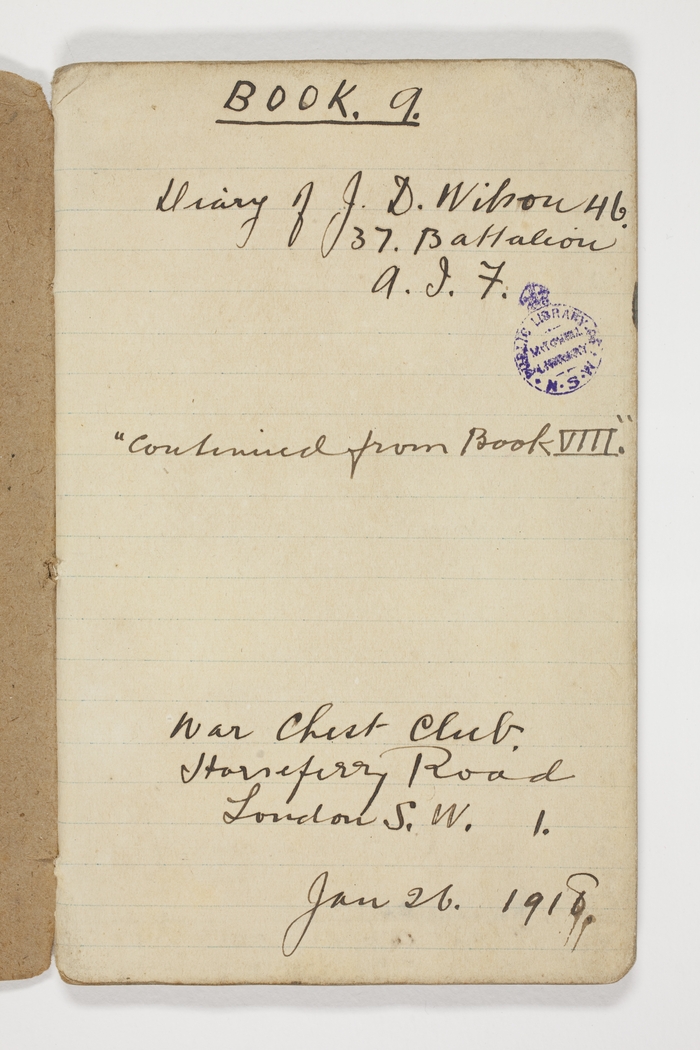 BOOK. 9.
Diary of J. D. Wilson 46.
37. Battalion
A. I. F.
PUBLIC LIBRARY OF N.S.W.
MITCHELL
LIBRARY
"continued from Book VIII."
War Chest Club
Horseferry Road
London S. W. 1.
Jan 26. 1918.